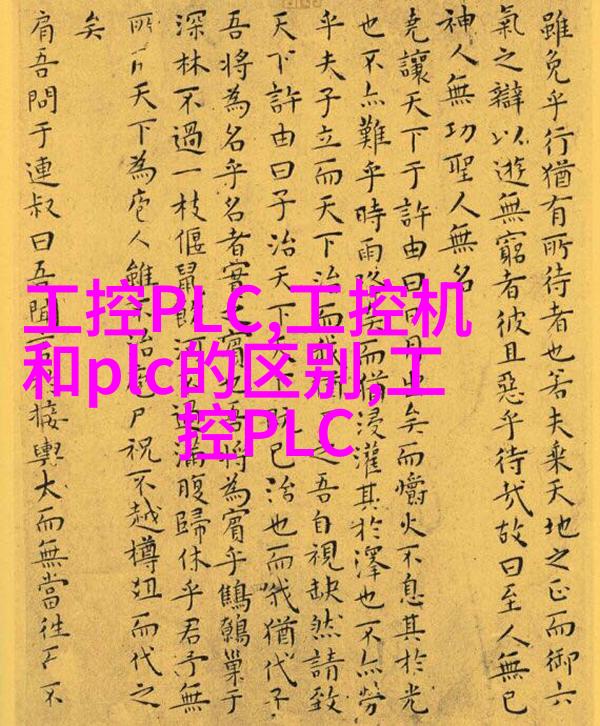 雖免乎行猶有所待者也若夫乘天地之正而御六
氣之辯以遊無窮者彼且惡乎待哉故曰至人無己
神人無功聖人無名
堯讓天下于許由曰日月出矣而爝火不息其於光
也不亦難乎時雨降矣而猶浸灌其於澤也不亦勞
乎夫子立而天下治而我之吾自視缺然請致
天下許由曰子治天下天下既已治也而我猶代子
吾將為名乎名者實之賓也吾將為賓乎鷦鷯巢于
深林不過一枝偃鼠飲河不過滿腹歸休乎君予無
所用天下為庖人雖不治庖尸祝不越樽俎而代之
矣
肩吾問于連叔曰吾聞言接輿大而無當往而不
工控PLC,工控机
和plc的区别,工
控PLC